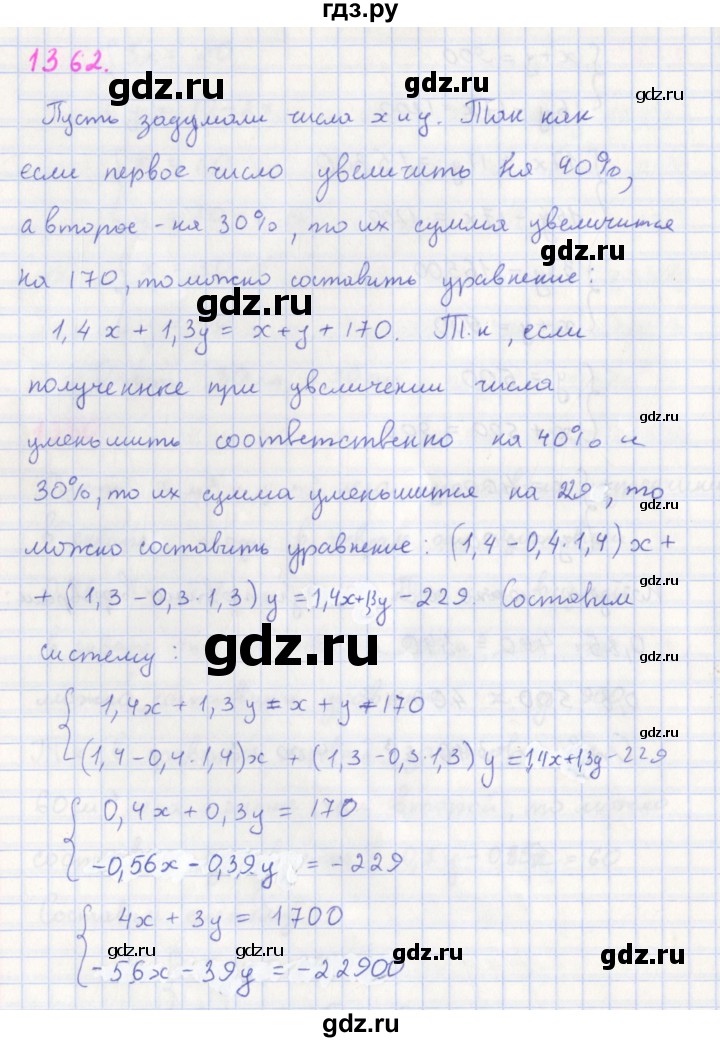 гдз.ру
1362.
gdz.ru
Пусть задумали числа x и y. Так как
gdz.ru
если первое число увеличить на 40%,
gdz.ru
а второе - на 30%, то их сумма увеличится
gdz.ru
на 170, то можно составить уравнение:
gdz.ru
1,4x + 1,3y = x + y + 170. Т.к, если
полученные при увеличении числа
gdz.ru
уменьшить соответственно на 40% и
gdz.ru
30%, то их сумма уменьшится на 229, то
gdz.ru
можно составить уравнение: (1,4 - 0,4·1,4)x +
gdz.ru
+ (1,3 - 0,3·1,3)y = 1,4x+1,3y - 229. Составим
gdz.ru
систему:
1,4x + 1,3y = x + y + 170
gdz.ru
(1,4 - 0,4·1,4)x + (1,3 - 0,3·1,3)y = 1,4x+1,3y - 229
0,4x + 0,3y = 170
-0,56x - 0,39y = -229
4x + 3y = 1700
gdz.ru gdz.ru gdz.ru
-56x - 39y = -22900
gdz.ru